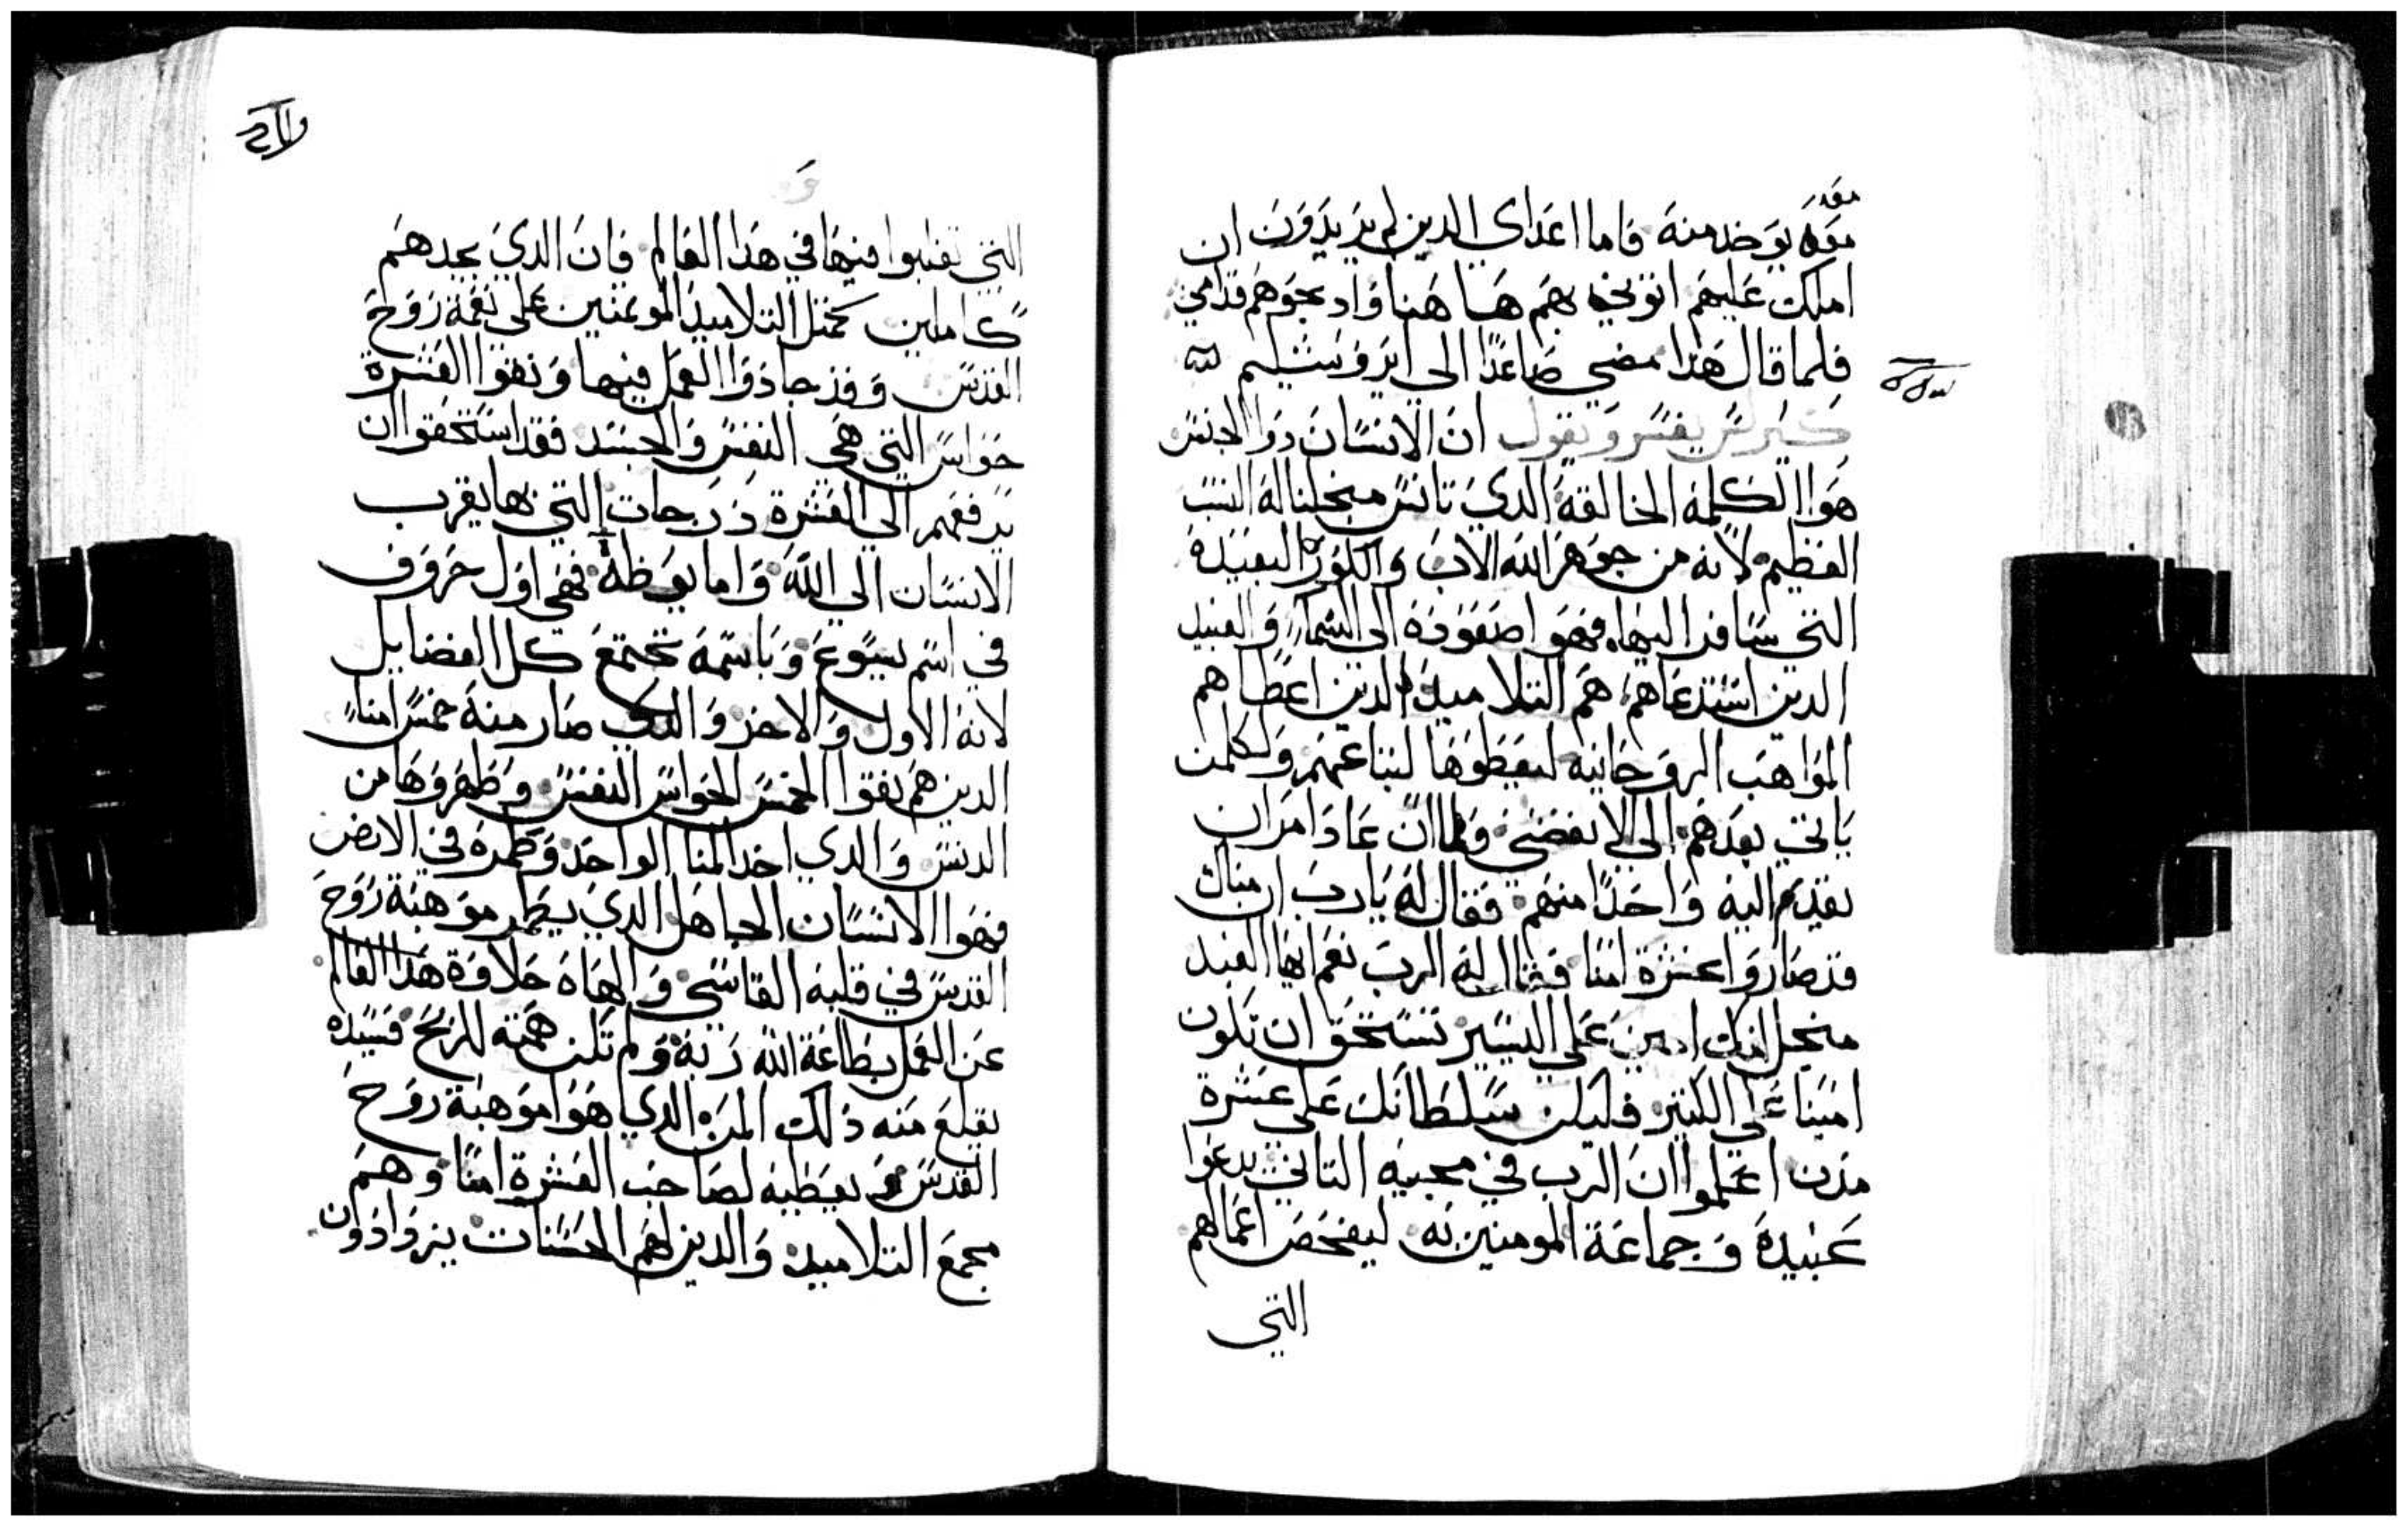 معه
معه يوخد منه فاما اعداى الدين لم يريدون ان
املك عليهم اتونى بهم هاهنا وادبحوهم قدامى
فلما قال هدا مضي صاعدًا الي ايروشليم
كيرلس يفسر ويقول ان الانسان دوا الجنس
هوا الكلمه الخالقه الدي تانس من اجلنا له النسب
العظيم لانه من جوهر الله الاب والكوره البعيدة
التي سافر اليها فهو اصعوده الى السما والعبيد
الدين استدعاهم هم التلاميد الدين اعطاهم
المواهب الروحانيه ليعطوها لتباعهم ولكلمن
ياتي بعدهم الي الانقضى ولما ان عاد وامران
تقدم اليه واحدًا منهم فقال له يارب ان مناك
قد صاروا عشرة امنا فقال له الرب نعم ايها العبد
منجل انك امين علي اليسير تستحق ان تكون
امينا علي الكتير فليكن سلطانك علي عشرة
مدن اعلموا ان الرب في مجيه التاني يدعوا
عبيده وجماعة المومنين به ليفحص اعمالهم
التي
التي تقلبوا فيها في هدا العالم فان الدي يجدهم
كاملين كمتل التلاميد الموتمنين علي نعمة روح
القدس وقد جادوا العمل فيها ونقوا العشرة
حواس التي هي النفس والجسد فقد استحقوا ان
يرفعهم الي العشرة درجات التي بها يقرب
الانسان الي الله واما يوطه فهي اول حروف
في اسم يسوع وباسمه تجتمع كل الفضايل
لانه الاول والاخر والدي صار منه خمس امناء
الدين هم نقوا الخمس الحواس النفس وطهروها من
الدنس والدي اخد المنا الواحد وطمره في الارض
فهوا الانسان الجاهل الدي يطمر موهبة روح
القدس في قلبه القاسى والهاه حلاوة هدا العالم
عن العمل بطاعة الله ربه ولم تكن همته للربح فسيده
يقلع منه دلك المن الدي هوا موهبة روح
القدس ويعطيه لصاحب العشرة امنا وهم
مجمع التلاميد والدين لهم الحسنات يزدادون